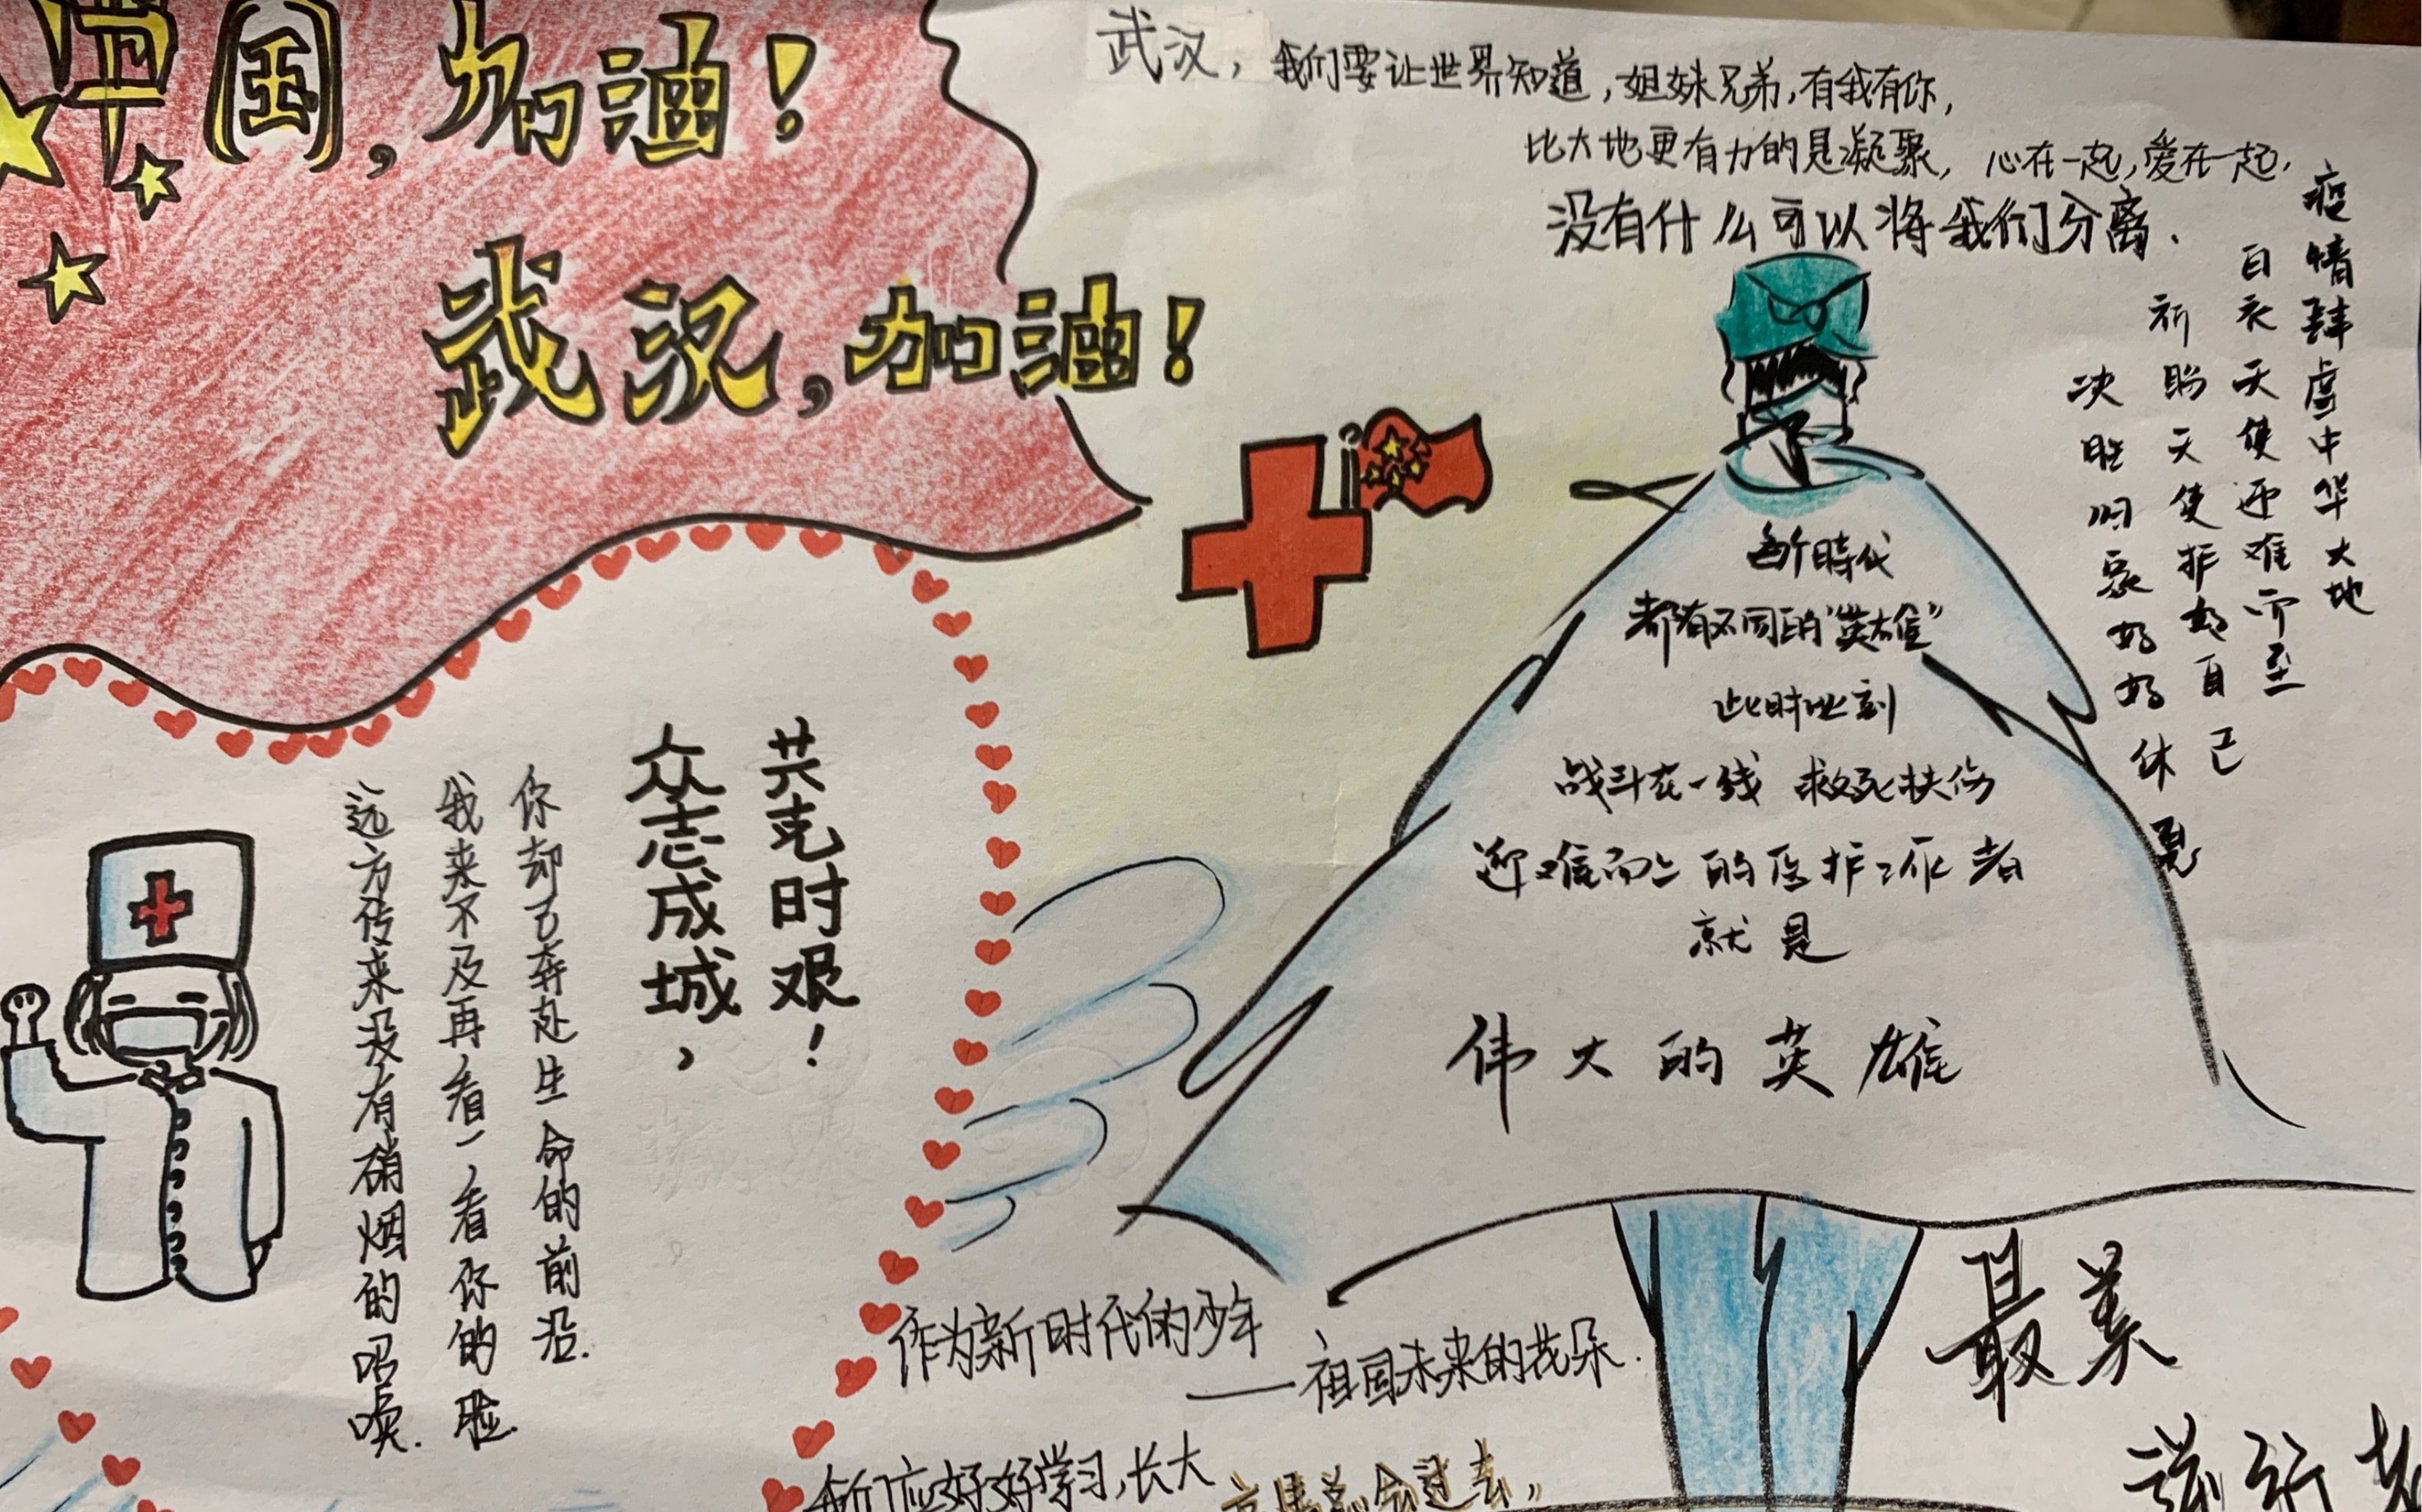 中国,加油!
武汉,加油!
武汉,我们要让世界知道,姐妹兄弟,有我有你,
比大地更有力的是凝聚,心在一起,爱在一起,
没有什么可以将我们分离.
疫情肆虐中华大地
白衣天使迎难而至
祈盼天使护好自己
决胜归家好好休息
每个時代
都有不同的“英雄”
此时此刻
战斗在一线 救死扶伤
迎难而上的医护工作者
就是
伟大的英雄
共克时艰!
众志成城,
远方传来没有硝烟的召唤.
我来不及再看一看你的脸.
你却已奔赴生命的前沿.
作为新时代的少年
——祖国未来的花朵.
我们应好好学习,长大
总会过去,
最美
逆行者